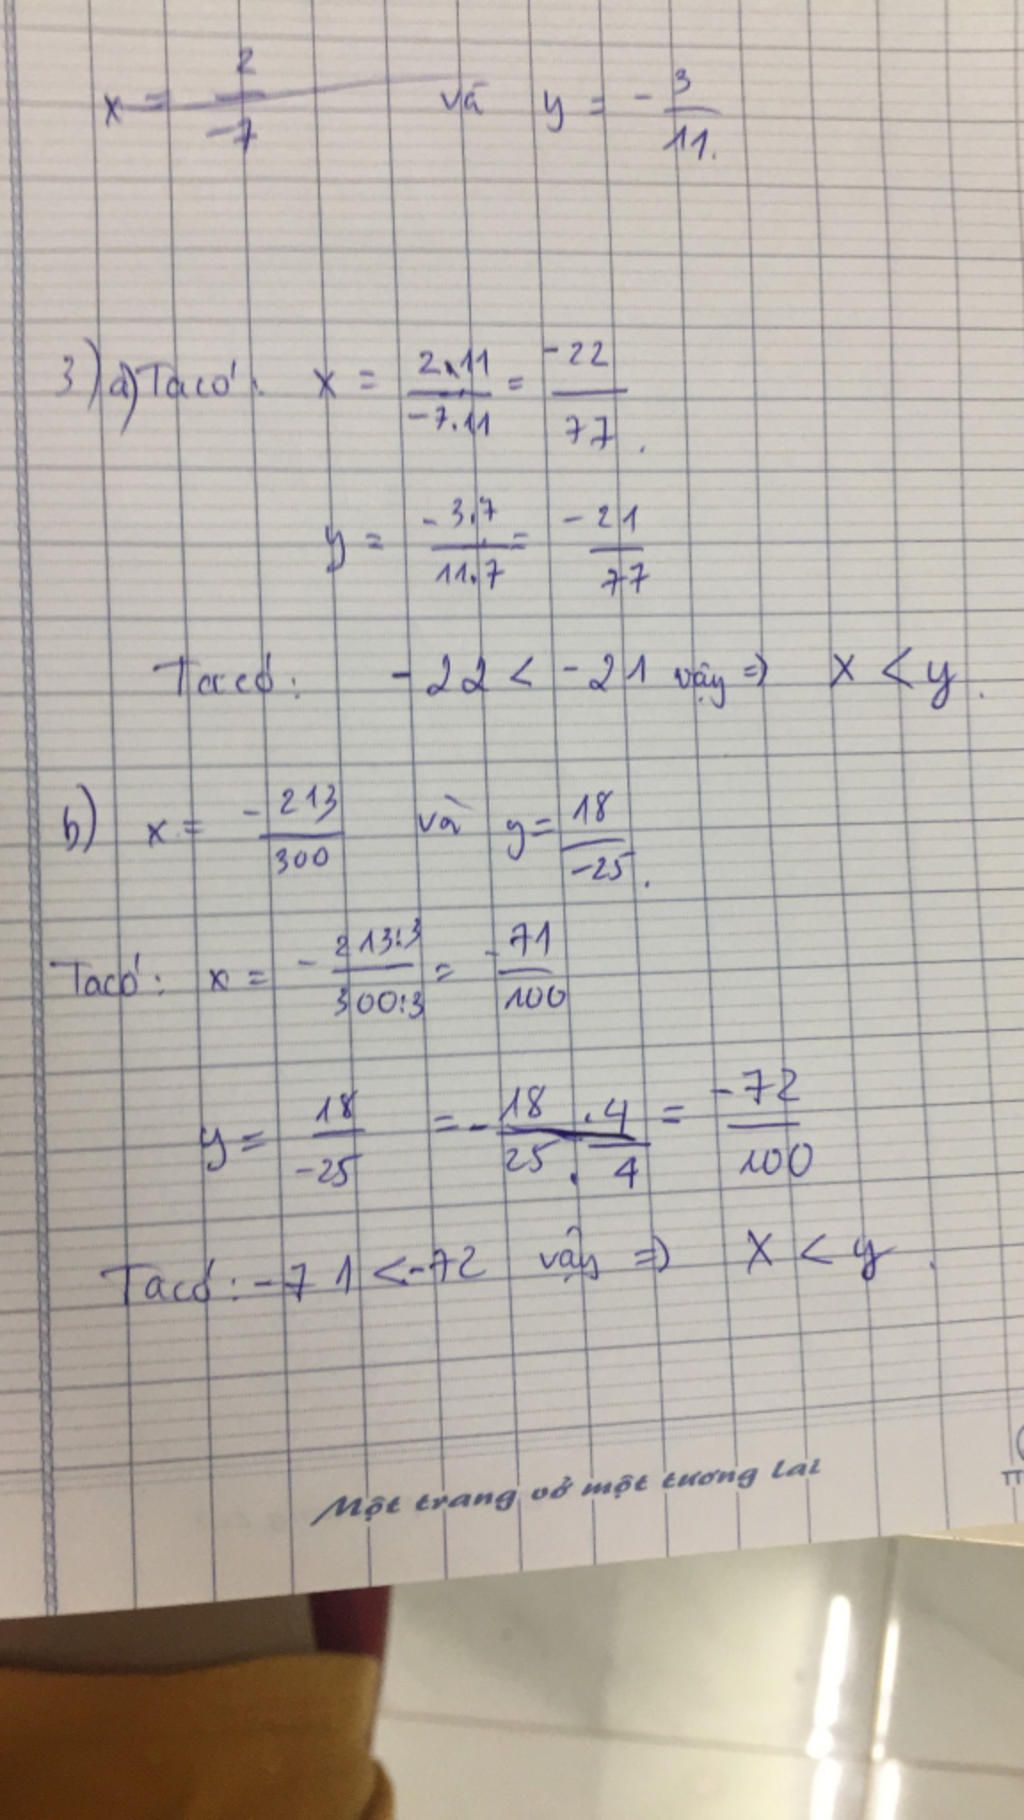 x = 2/-7 và y = - 3/11.
3) a) Ta có: x = 2.11/-7.11 = -22/77.
y = -3.7/11.7 = -21/77
Ta có: -22 < -21 vậy => x < y.
b) x = -213/300 và y = 18/-25.
Ta có: x = - 213:3/300:3 = -71/100
y = 18/-25 = - 18.4/25.4 = -72/100
Ta có: -71 < -72 vậy => x < y.
Một trang vở một tương lai